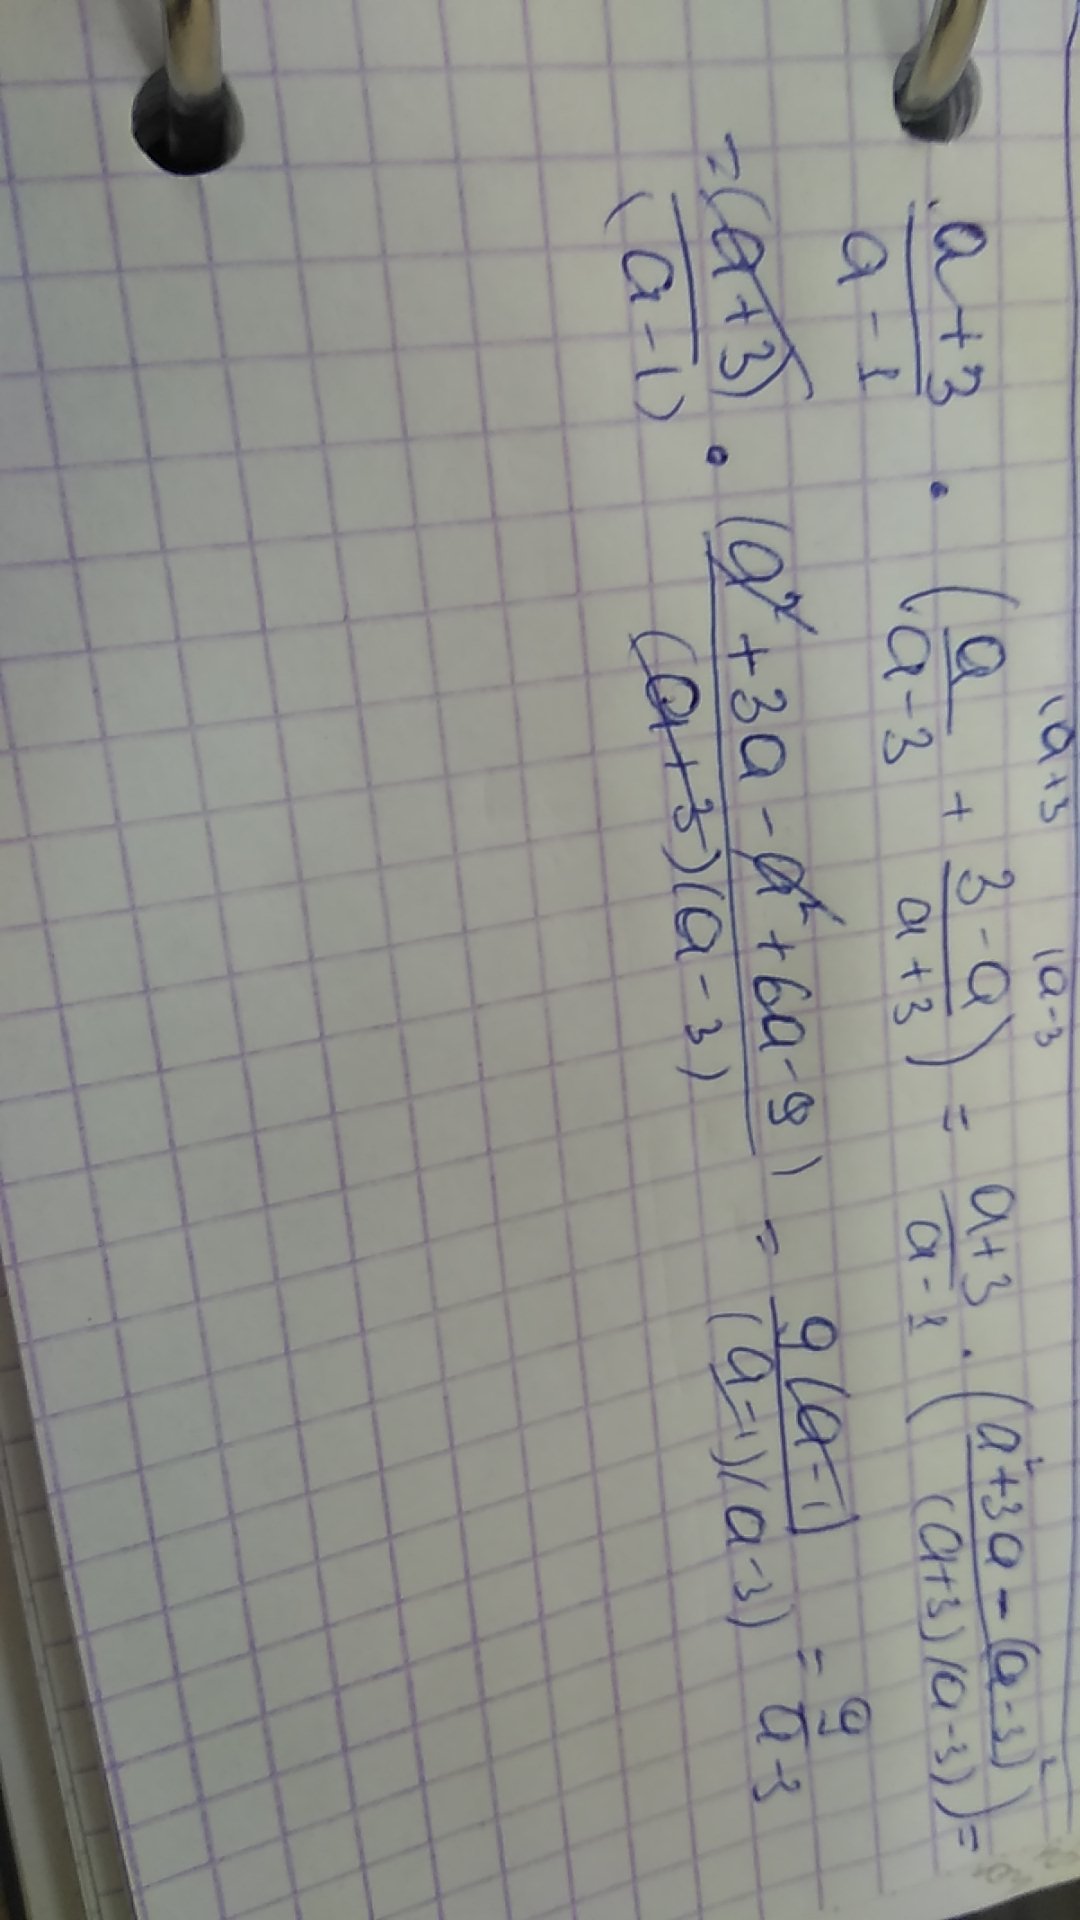 \a+3 \a-3
\frac{a+3}{a-1} · (\frac{a}{a-3} + \frac{3-a}{a+3}) = \frac{a+3}{a-1} · (\frac{a²+3a-(a-3)²}{(a+3)(a-3)}) =
= \frac{(a+3)}{(a-1)} · \frac{(a²+3a-a²+6a-9)}{(a+3)(a-3)} = \frac{9(a-1)}{(a-1)(a-3)} = \frac{9}{a-3}